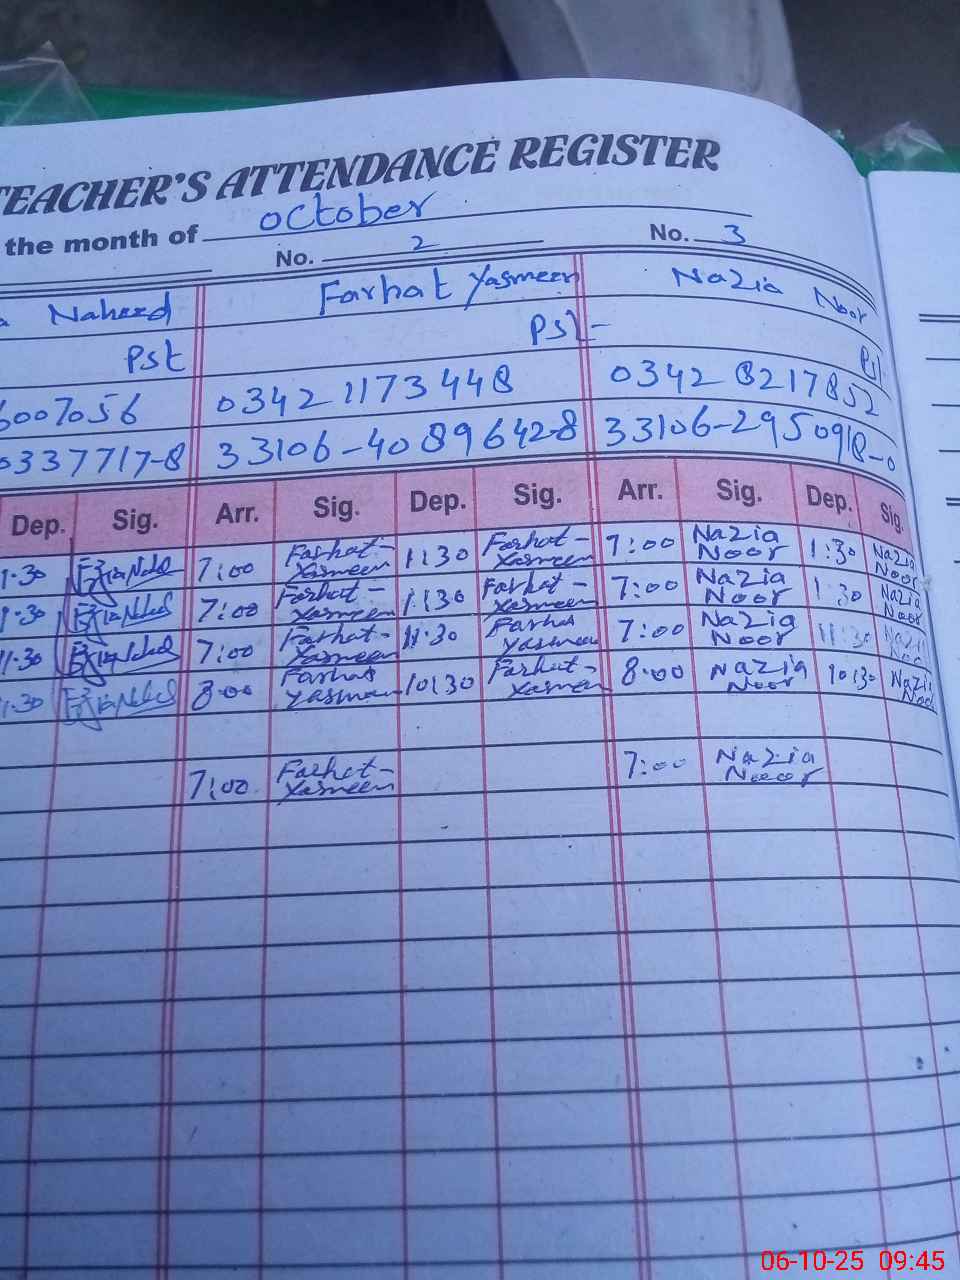 TEACHER'S ATTENDANCE REGISTER
the month of October
No. 2 No. 3
Naheed Farhat Yasmeen Nazia Noor
Pst Pst- Pst
6007056 0342 1173448 0342 8217852
0337717-8 33106-4089642-8 33106-2950918-0
Dep. Sig. Arr. Sig. Dep. Sig. Arr. Sig. Dep. Sig.
1:30 7:00 Farhat- Yasmeen 1:30 Farhat- Yasmeen 7:00 Nazia Noor 1:30 Nazia Noor
1:30 7:00 Farhat- Yasmeen 1:30 Farhat- Yasmeen 7:00 Nazia Noor 1:30 Nazia Noor
11:30 7:00 Farhat- Yasmeen 11:30 Farhat Yasmeen 7:00 Nazia Noor 11:30 Nazia Noor
8:00 Farhat Yasmeen 10:30 Farhat- Yasmeen 8:00 Nazia Noor 10:30 Nazia Noor
7:00 Farhat- Yasmeen 7:00 Nazia Noor
06-10-25 09:45